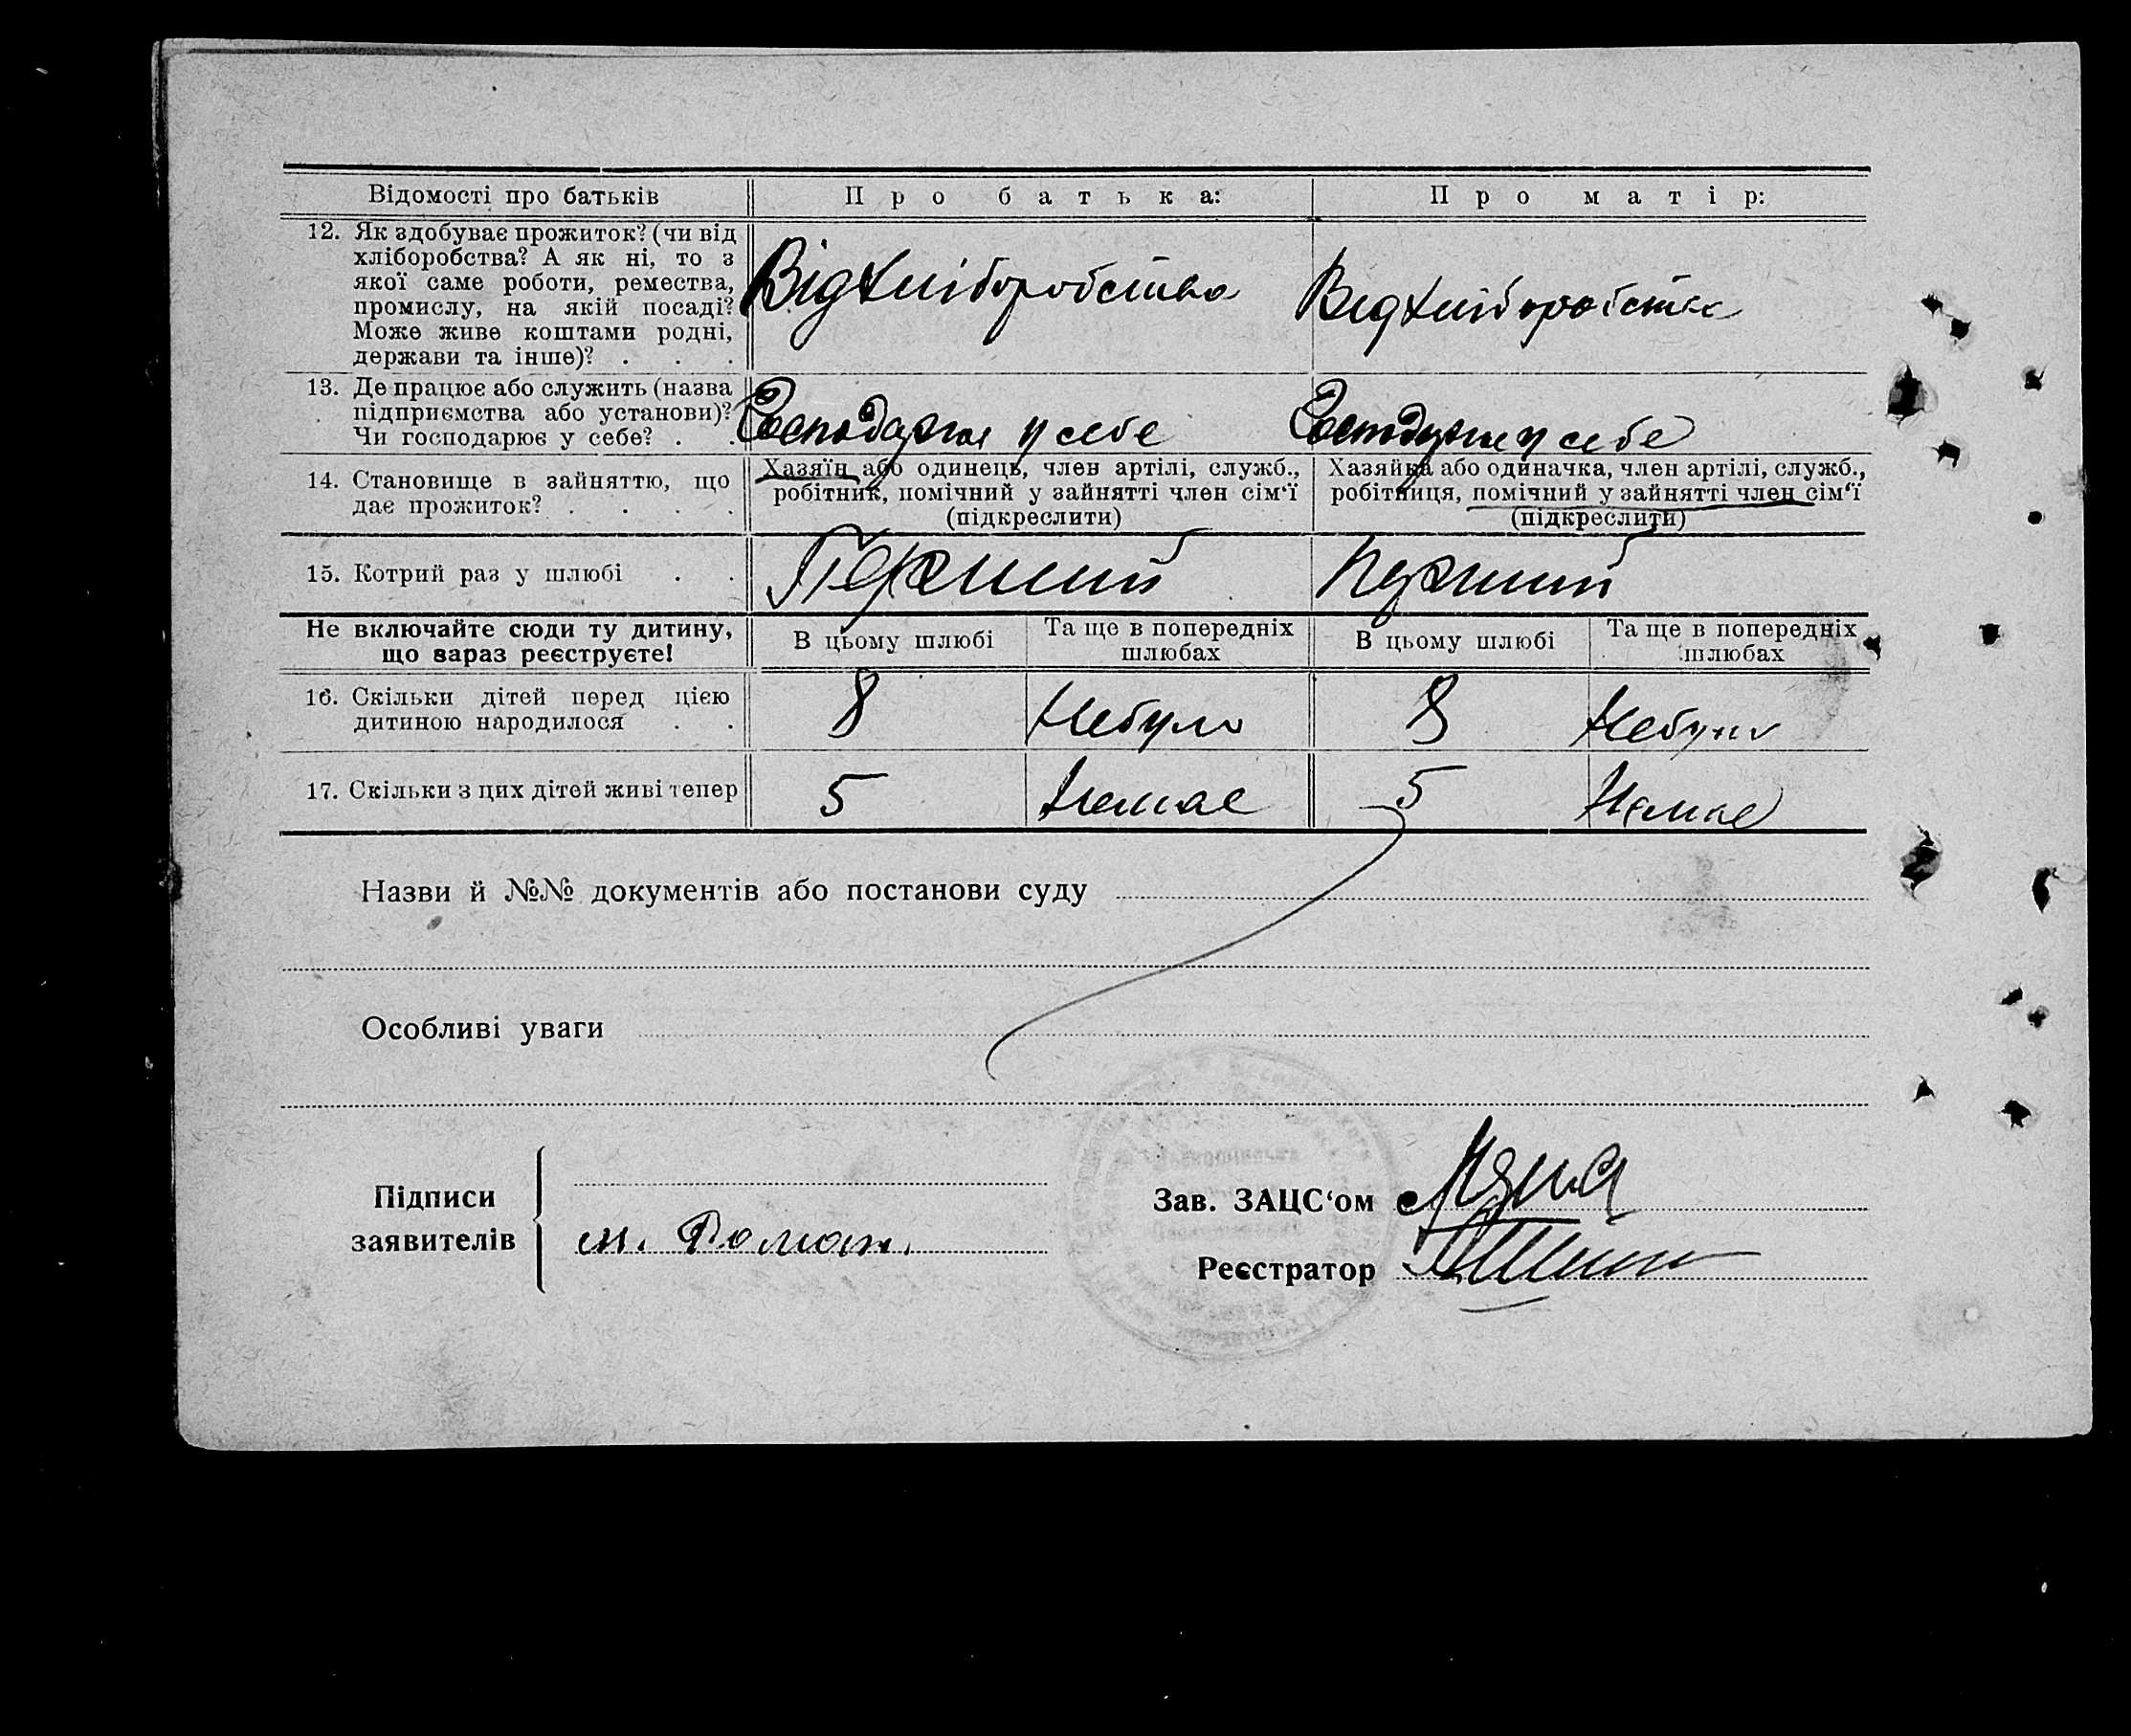 Відомості про батьків
Про батька:
Про матір:
12. Як здобуває прожиток? (чи від
хліборобства? А як ні, то з
якої саме роботи, ремества,
промислу, на якій посаді?
Може живе коштами родні,
держави та інше)? . . .
Від хліборобства
Від хліборобства
13. Де працює або служить (назва
підприємства або установи)?
Чи господарює у себе? . .
Господарює у себе
Господарює у себе
14. Становище в зайняттю, що
дає прожиток? . . . .
Хазяїн або одинець, член артілі, служб.,
робітник, помічний у зайнятті член сім‘ї
(підкреслити)
Хазяйка або одиначка, член артілі, служб.,
робітниця, помічний у зайнятті член сім‘ї
(підкреслити)
15. Котрий раз у шлюбі . .
Перший
Перший
Не включайте сюди ту дитину,
що зараз реєструєте!
В цьому шлюбі
Та ще в попередніх
шлюбах
В цьому шлюбі
Та ще в попередніх
шлюбах
16. Скільки дітей перед цією
дитиною народилося . .
8
Небуло
8
Небуло
17. Скільки з цих дітей живі тепер
5
Немає
5
Немає
Назви й №№ документів або постанови суду
Особливі уваги
Підписи
заявителів
м. Роман.
Зав. ЗАЦС‘ом
Реєстратор